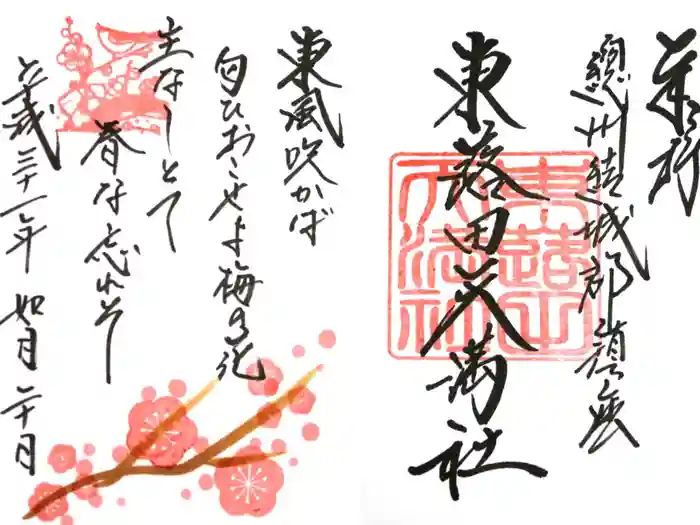 奉拝
總州結城郡鎮座
東蕗田天満社
東風吹かば
匂ひおこせよ梅の花
主なしとて
春な忘れそ
平成三十一年 如月 二十日